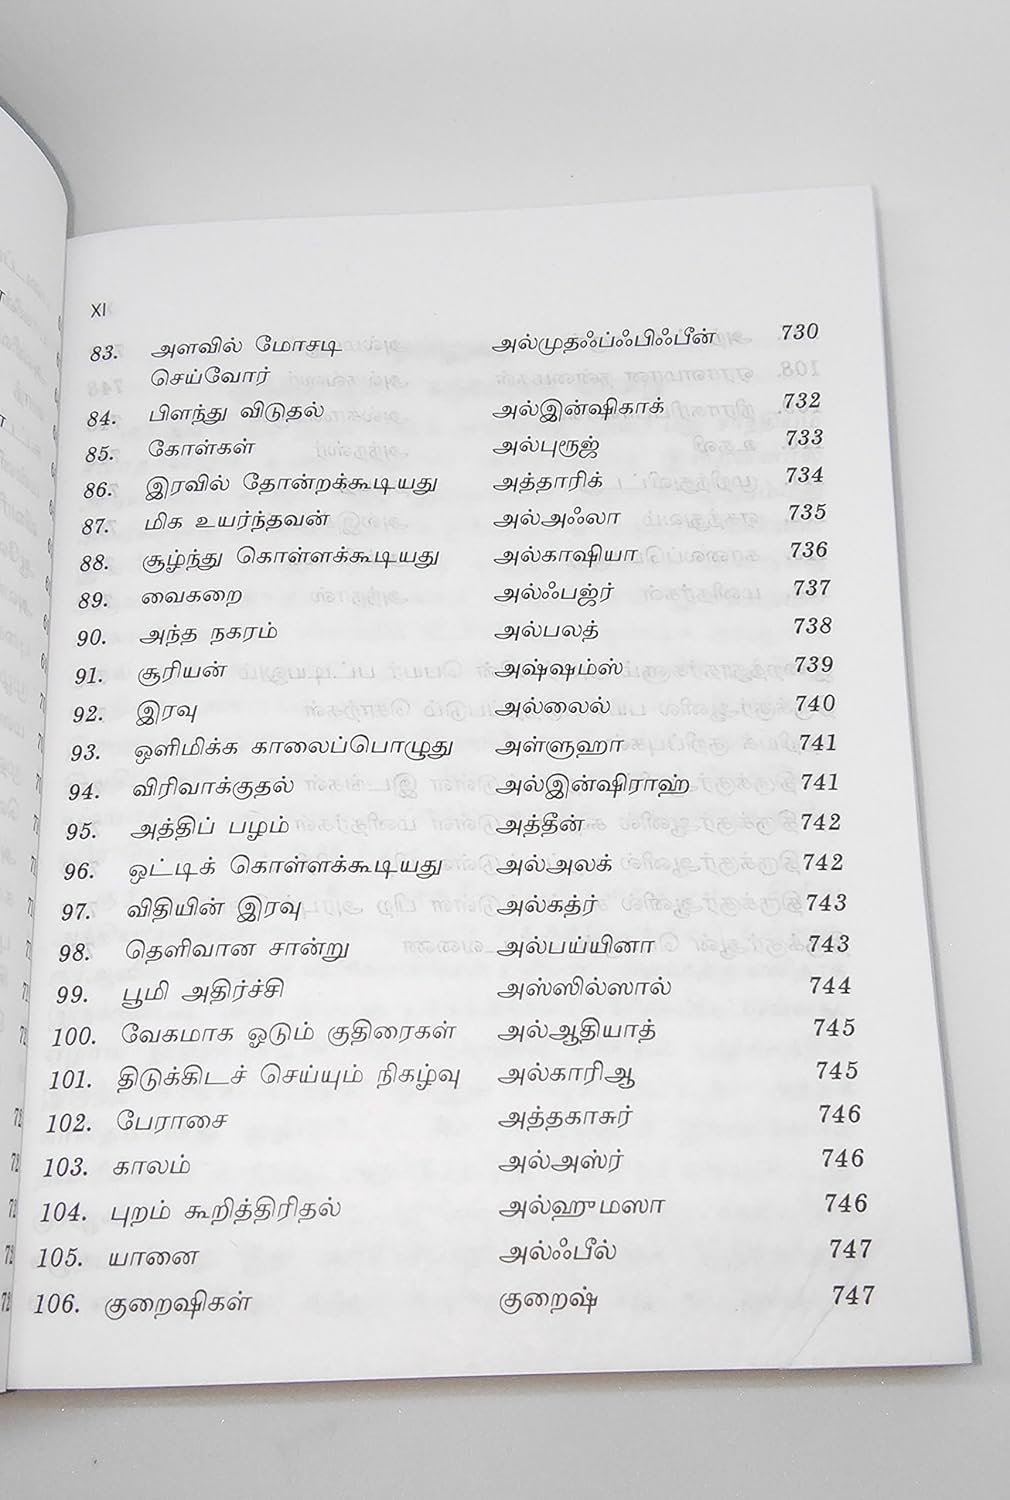 XI
83. அளவில் மோசடி அல்முதஃப்ஃபிஃபீன் 730
செய்வோர்
84. பிளந்து விடுதல் அல்இன்ஷிகாக் 732
85. கோள்கள் அல்புரூஜ் 733
86. இரவில் தோன்றக்கூடியது அத்தாரிக் 734
87. மிக உயர்ந்தவன் அல்அஃலா 735
88. சூழ்ந்து கொள்ளக்கூடியது அல்காஷியா 736
89. வைகறை அல்ஃபஜ்ர் 737
90. அந்த நகரம் அல்பலத் 738
91. சூரியன் அஷ்ஷம்ஸ் 739
92. இரவு அல்லைல் 740
93. ஒளிமிக்க காலைப்பொழுது அள்ளுஹா 741
94. விரிவாக்குதல் அல்இன்ஷிராஹ் 741
95. அத்திப் பழம் அத்தீன் 742
96. ஒட்டிக் கொள்ளக்கூடியது அல்அலக் 742
97. விதியின் இரவு அல்கத்ர் 743
98. தெளிவான சான்று அல்பய்யினா 743
99. பூமி அதிர்ச்சி அஸ்ஸில்ஸால் 744
100. வேகமாக ஓடும் குதிரைகள் அல்ஆதியாத் 745
101. திடுக்கிடச் செய்யும் நிகழ்வு அல்காரிஆ 745
102. பேராசை அத்தகாசுர் 746
103. காலம் அல்அஸ்ர் 746
104. புறம் கூறித்திரிதல் அல்ஹுமஸா 746
105. யானை அல்ஃபீல் 747
106. குறைஷிகள் குறைஷ் 747